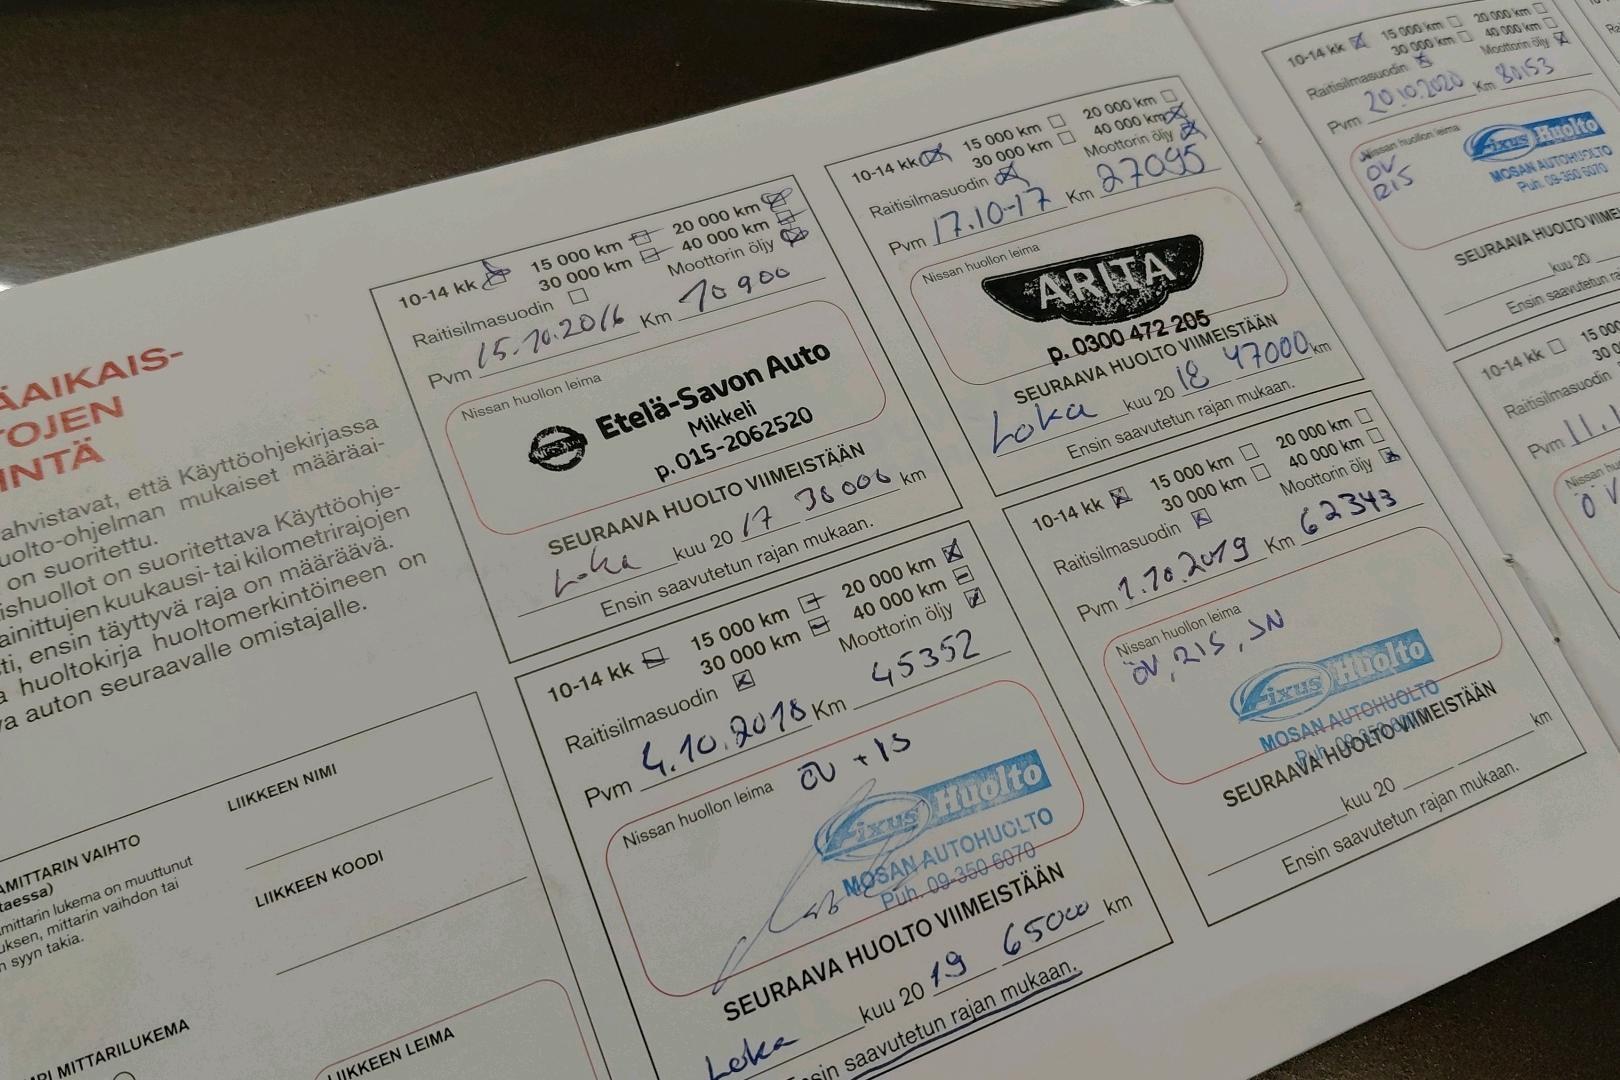 ÄAIKAIS-
TOJEN
INTÄ
ahvistavat, että Käyttöohjekirjassa
uolto-ohjelman mukaiset määräai-
on suoritettu.
ishuollot on suoritettava Käyttöohje-
ainittujen kuukausi- tai kilometrirajojen
ti, ensin täyttyvä raja on määräävä.
a huoltokirja huoltomerkintöineen on
va auton seuraavalle omistajalle.
AMITTARIN VAIHTO
taessa)
mittarin lukema on muuttunut
uksen, mittarin vaihdon tai
n syyn takia.
MPI MITTARILUKEMA
LIIKKEEN NIMI
LIIKKEEN KOODI
LIIKKEEN LEIMA
10-14 kk 15 000 km 20 000 km
30 000 km 40 000 km
Raitisilmasuodin Moottorin öljy
Pvm 15.10.2016 Km 10900
Nissan huollon leima
Etelä-Savon Auto
Mikkeli
p. 015-2062520
SEURAAVA HUOLTO VIIMEISTÄÄN
Loka kuu 20 17 30000 km
Ensin saavutetun rajan mukaan.
10-14 kk 15 000 km 20 000 km
30 000 km 40 000 km
Raitisilmasuodin Moottorin öljy
Pvm 4.10.2018 Km 45352
Nissan huollon leima ÖV + IS
Fixus Huolto
MOSAN AUTOHUOLTO
Puh. 09-350 6070
SEURAAVA HUOLTO VIIMEISTÄÄN
Loka kuu 20 19 65000 km
Ensin saavutetun rajan mukaan.
10-14 kk 15 000 km 20 000 km
30 000 km 40 000 km
Raitisilmasuodin Moottorin öljy
Pvm 17.10-17 Km 27095
Nissan huollon leima
ARITA
p. 0300 472 205
SEURAAVA HUOLTO VIIMEISTÄÄN
Loka kuu 20 18 47000 km
Ensin saavutetun rajan mukaan.
10-14 kk 15 000 km 20 000 km
30 000 km 40 000 km
Raitisilmasuodin Moottorin öljy
Pvm 1.10.2019 Km 62343
Nissan huollon leima
ÖV, RIS, JN
Fixus Huolto
MOSAN AUTOHUOLTO
Puh. 09-350 6070
SEURAAVA HUOLTO VIIMEISTÄÄN
kuu 20 km
Ensin saavutetun rajan mukaan.
10-14 kk 15 000 km 20 000 km
30 000 km 40 000 km
Raitisilmasuodin Moottorin öljy
Pvm 20.10.2020 Km 80153
Nissan huollon leima
ÖV
RIS
Fixus Huolto
MOSAN AUTOHUOLTO
Puh. 09-350 6070
SEURAAVA HUOLTO VIIME
kuu 20
Ensin saavutetun raja
10-14 kk 15 000
30 0
Raitisilmasuodin
Pvm 11.1
Nissan hu
ÖV